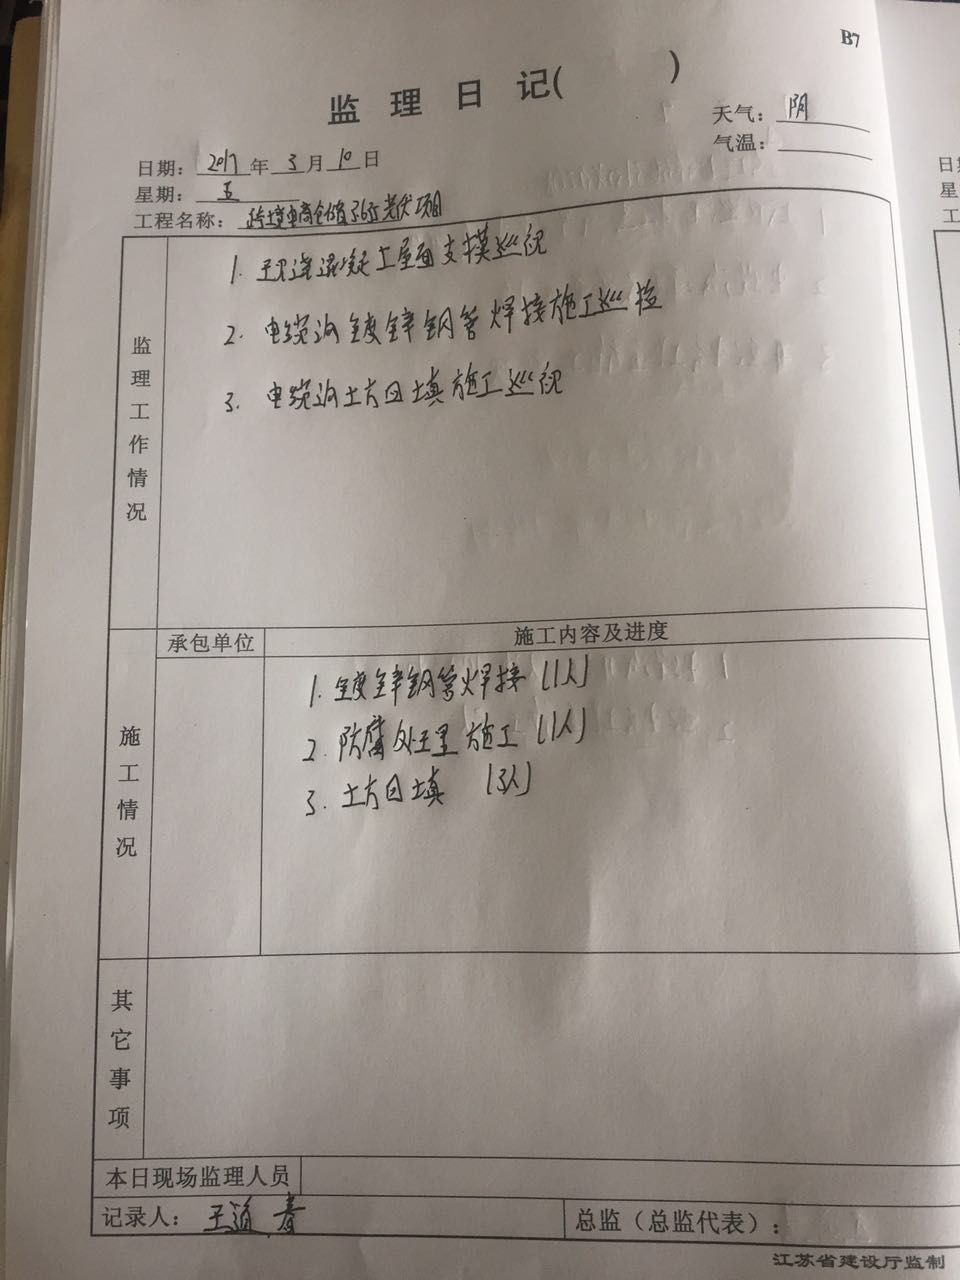 B7
监 理 日 记( )
天气: 阴
气温:
日期: 2017 年 3 月 10 日
星期: 五
工程名称: 跨境电商仓储 光伏项目
监理工作情况
1. 现浇混凝土屋面支模巡视
2. 电缆沟镀锌钢管焊接施工巡检
3. 电缆沟土方回填施工巡视
施工情况
承包单位
施工内容及进度
1. 镀锌钢管焊接 (1人)
2. 防腐处理施工 (1人)
3. 土方回填 (3人)
其它事项
本日现场监理人员
记录人: 王道春
总监（总监代表）:
江苏省建设厅监制
日
星
工